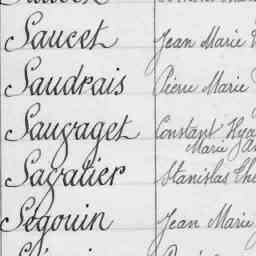 Saucet Jean Marie
Saudrais Pierre Marie
Sauzaget Constant
Marie
Savatier Stanislas
Segouin Jean Marie